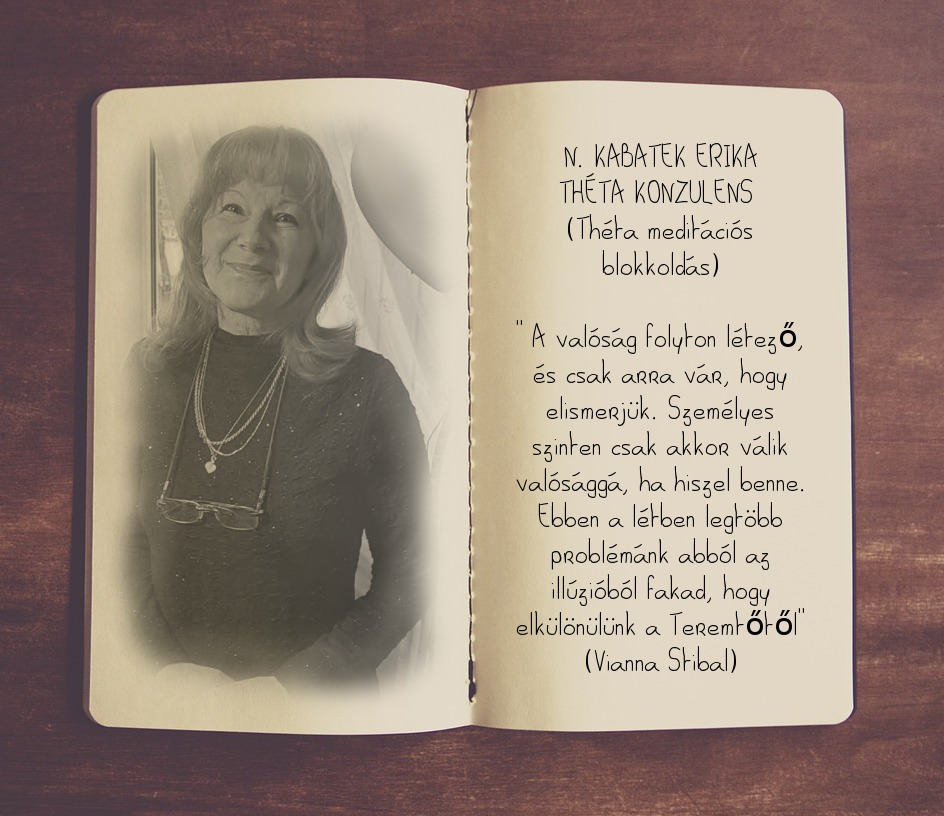 N. KABATEK ERIKA
THÉTA KONZULENS
(Théta meditációs
blokkoldás)
" A valóság folyton létező,
és csak arra vár, hogy
elismerjük. Személyes
szinten csak akkor válik
valósággá, ha hiszel benne.
Ebben a létben legtöbb
problémánk abból az
illúzióból fakad, hogy
elkülönülünk a Teremtőtől"
(Vianna Stibal)